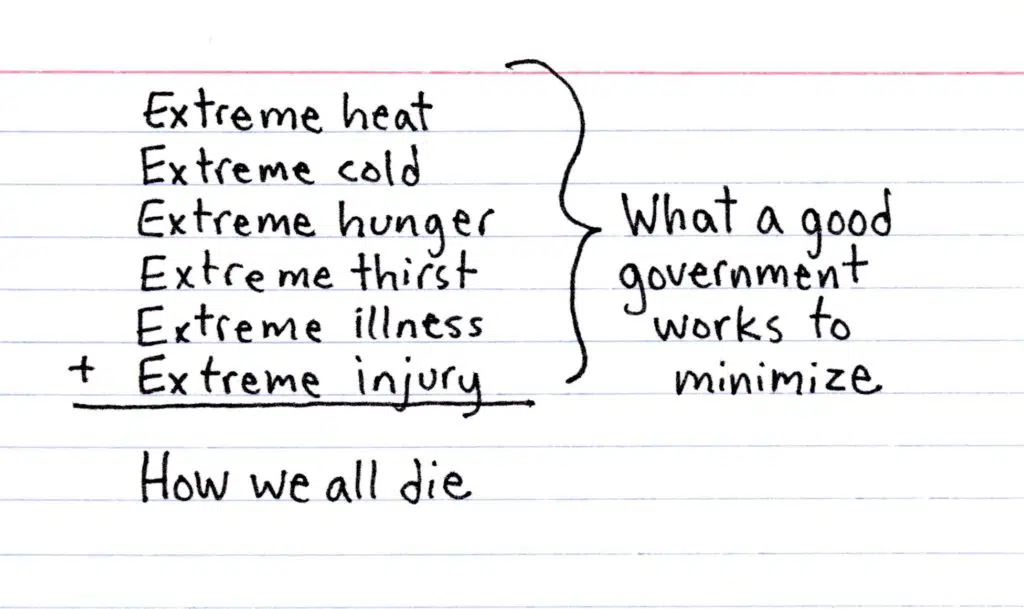 Extreme heat
Extreme cold
Extreme hunger
Extreme thirst
Extreme illness
+ Extreme injury
How we all die
What a good
government
works to
minimize